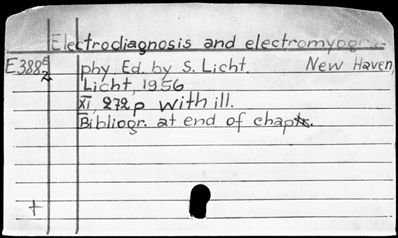 Electrodiagnosis and electromyogra-
E388E2 phy Ed. by S. Licht. New Haven,
Licht, 1956
XI, 272 p with ill.
Bibliogr. at end of chapts.
+